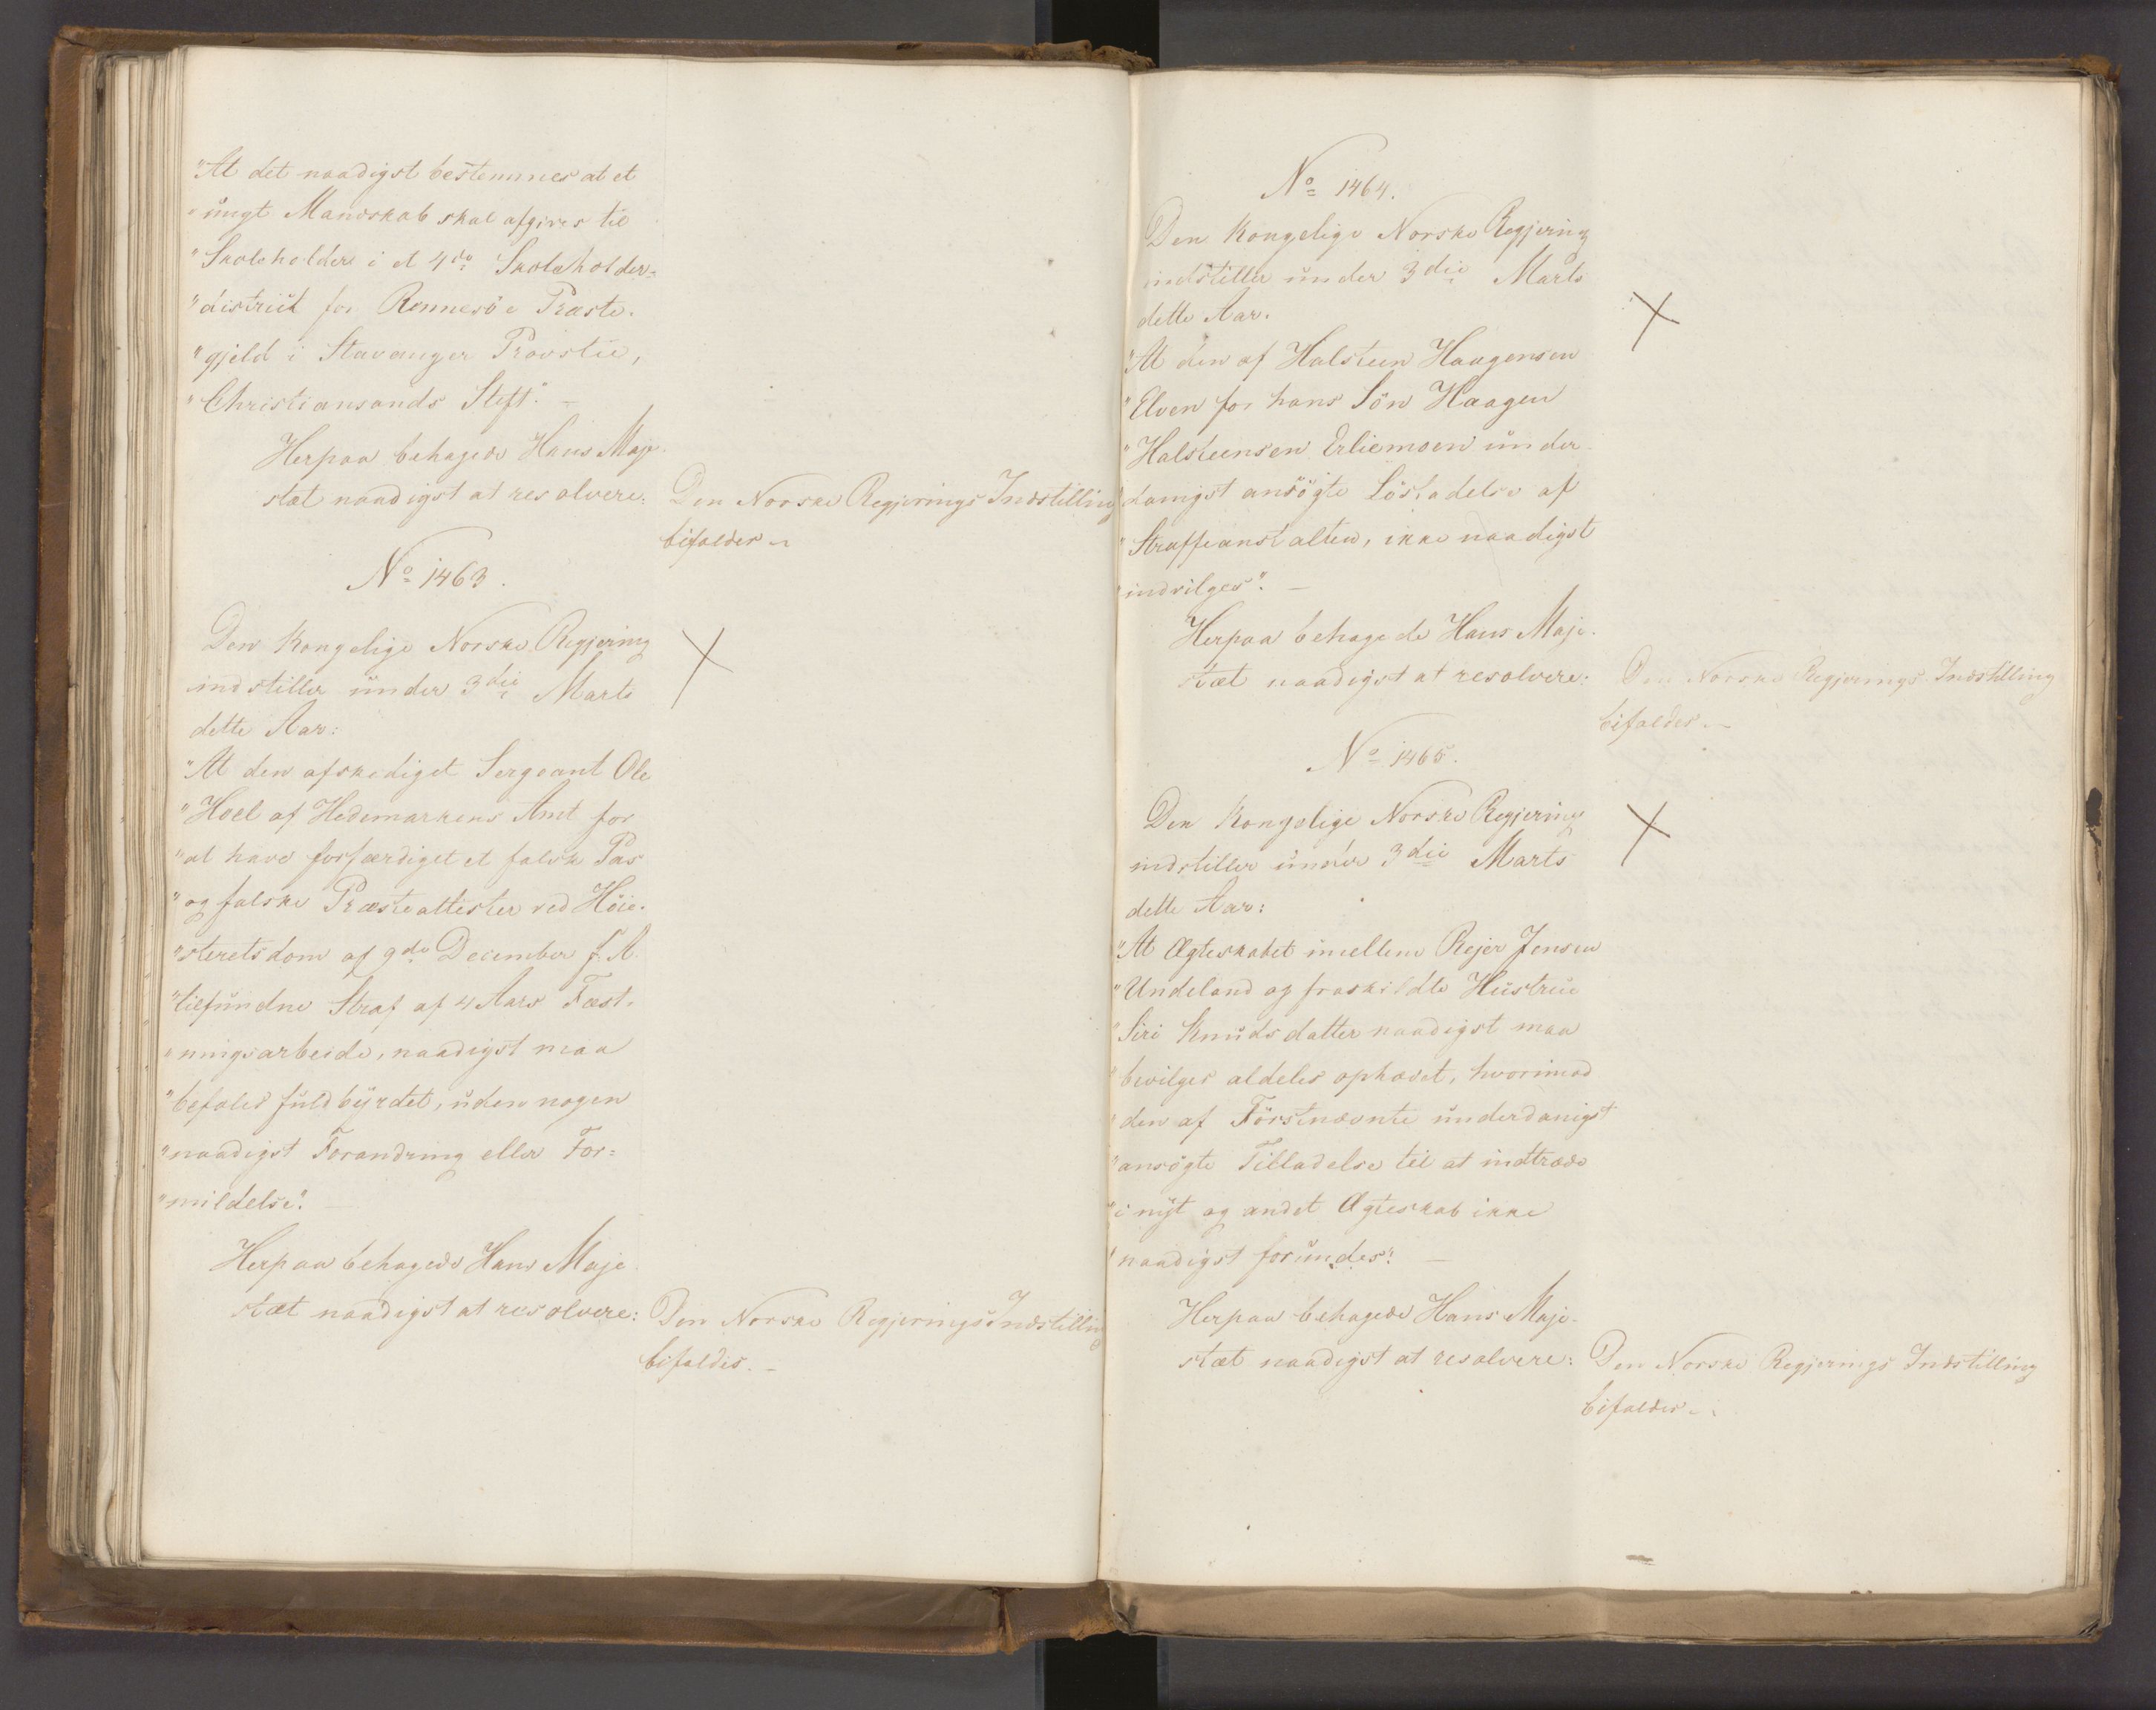 "At det naadigst bestemmes at et
"ungt Mandskab skal afgives til
"Skoleholdere i et 4de Skoleholder=
"district for Rennesöe Præste-
"gjeld i Stavanger Provstie,
"Christiansands Stift". –
Herpaa behagede Hans Maje-
stæt naadigst at resolvere:
Den Norske Regjerings Indstilling
bifaldes –
No 1463.
Den Kongelige Norske Regjering
indstiller under 3die Marts
dette Aar:
"At den afskediget Sergeant Ole
"Hoel af Hedemarkens Amt for
"at have forfærdiget et falsk Pas
"og falske Præsteattester ved Höie-
"steretsdom af 9de December f. A.
"tilfundne Straf af 4 Aars Fæst-
"ningsarbeide, naadigst maa
"befales fuldbyrdet, uden nogen
"naadigst Forandring eller For=
"mildelse". –
Herpaa behagede Hans Maje-
stæt naadigst at resolvere:
Den Norske Regjerings Indstilling
bifaldes. –
No 1464.
Den Kongelige Norske Regjering
indstiller under 3die Marts
dette Aar.
"At den af Halsteen Haagensen
"Elven for hans Sön Haagen
"Halsteensen Erliemoen under-
"danigst ansögte Lösladelse af
"Straffeanstalten, ikke naadigst
"indvilges". –
Herpaa behagede Hans Maje-
stæt naadigst at resolvere:
Den Norske Regjerings Indstilling
bifaldes. –
No 1465.
Den Kongelige Norske Regjering
indstiller under 3die Marts
dette Aar:
"At Ægteskabet imellem Rejer Jensen
"Undeland og fraskildte Hustrue
"Siri Knudsdatter naadigst maa
"bevilges aldeles ophævet, hvorimod
"den af Förstnævnte underdanigst
"ansögte Tilladelse til at indtræde
"i nyt og andet Ægteskab ikke
"naadigst forundes". –
Herpaa behagede Hans Maje-
stæt naadigst at resolvere:
Den Norske Regjerings Indstilling
bifaldes –